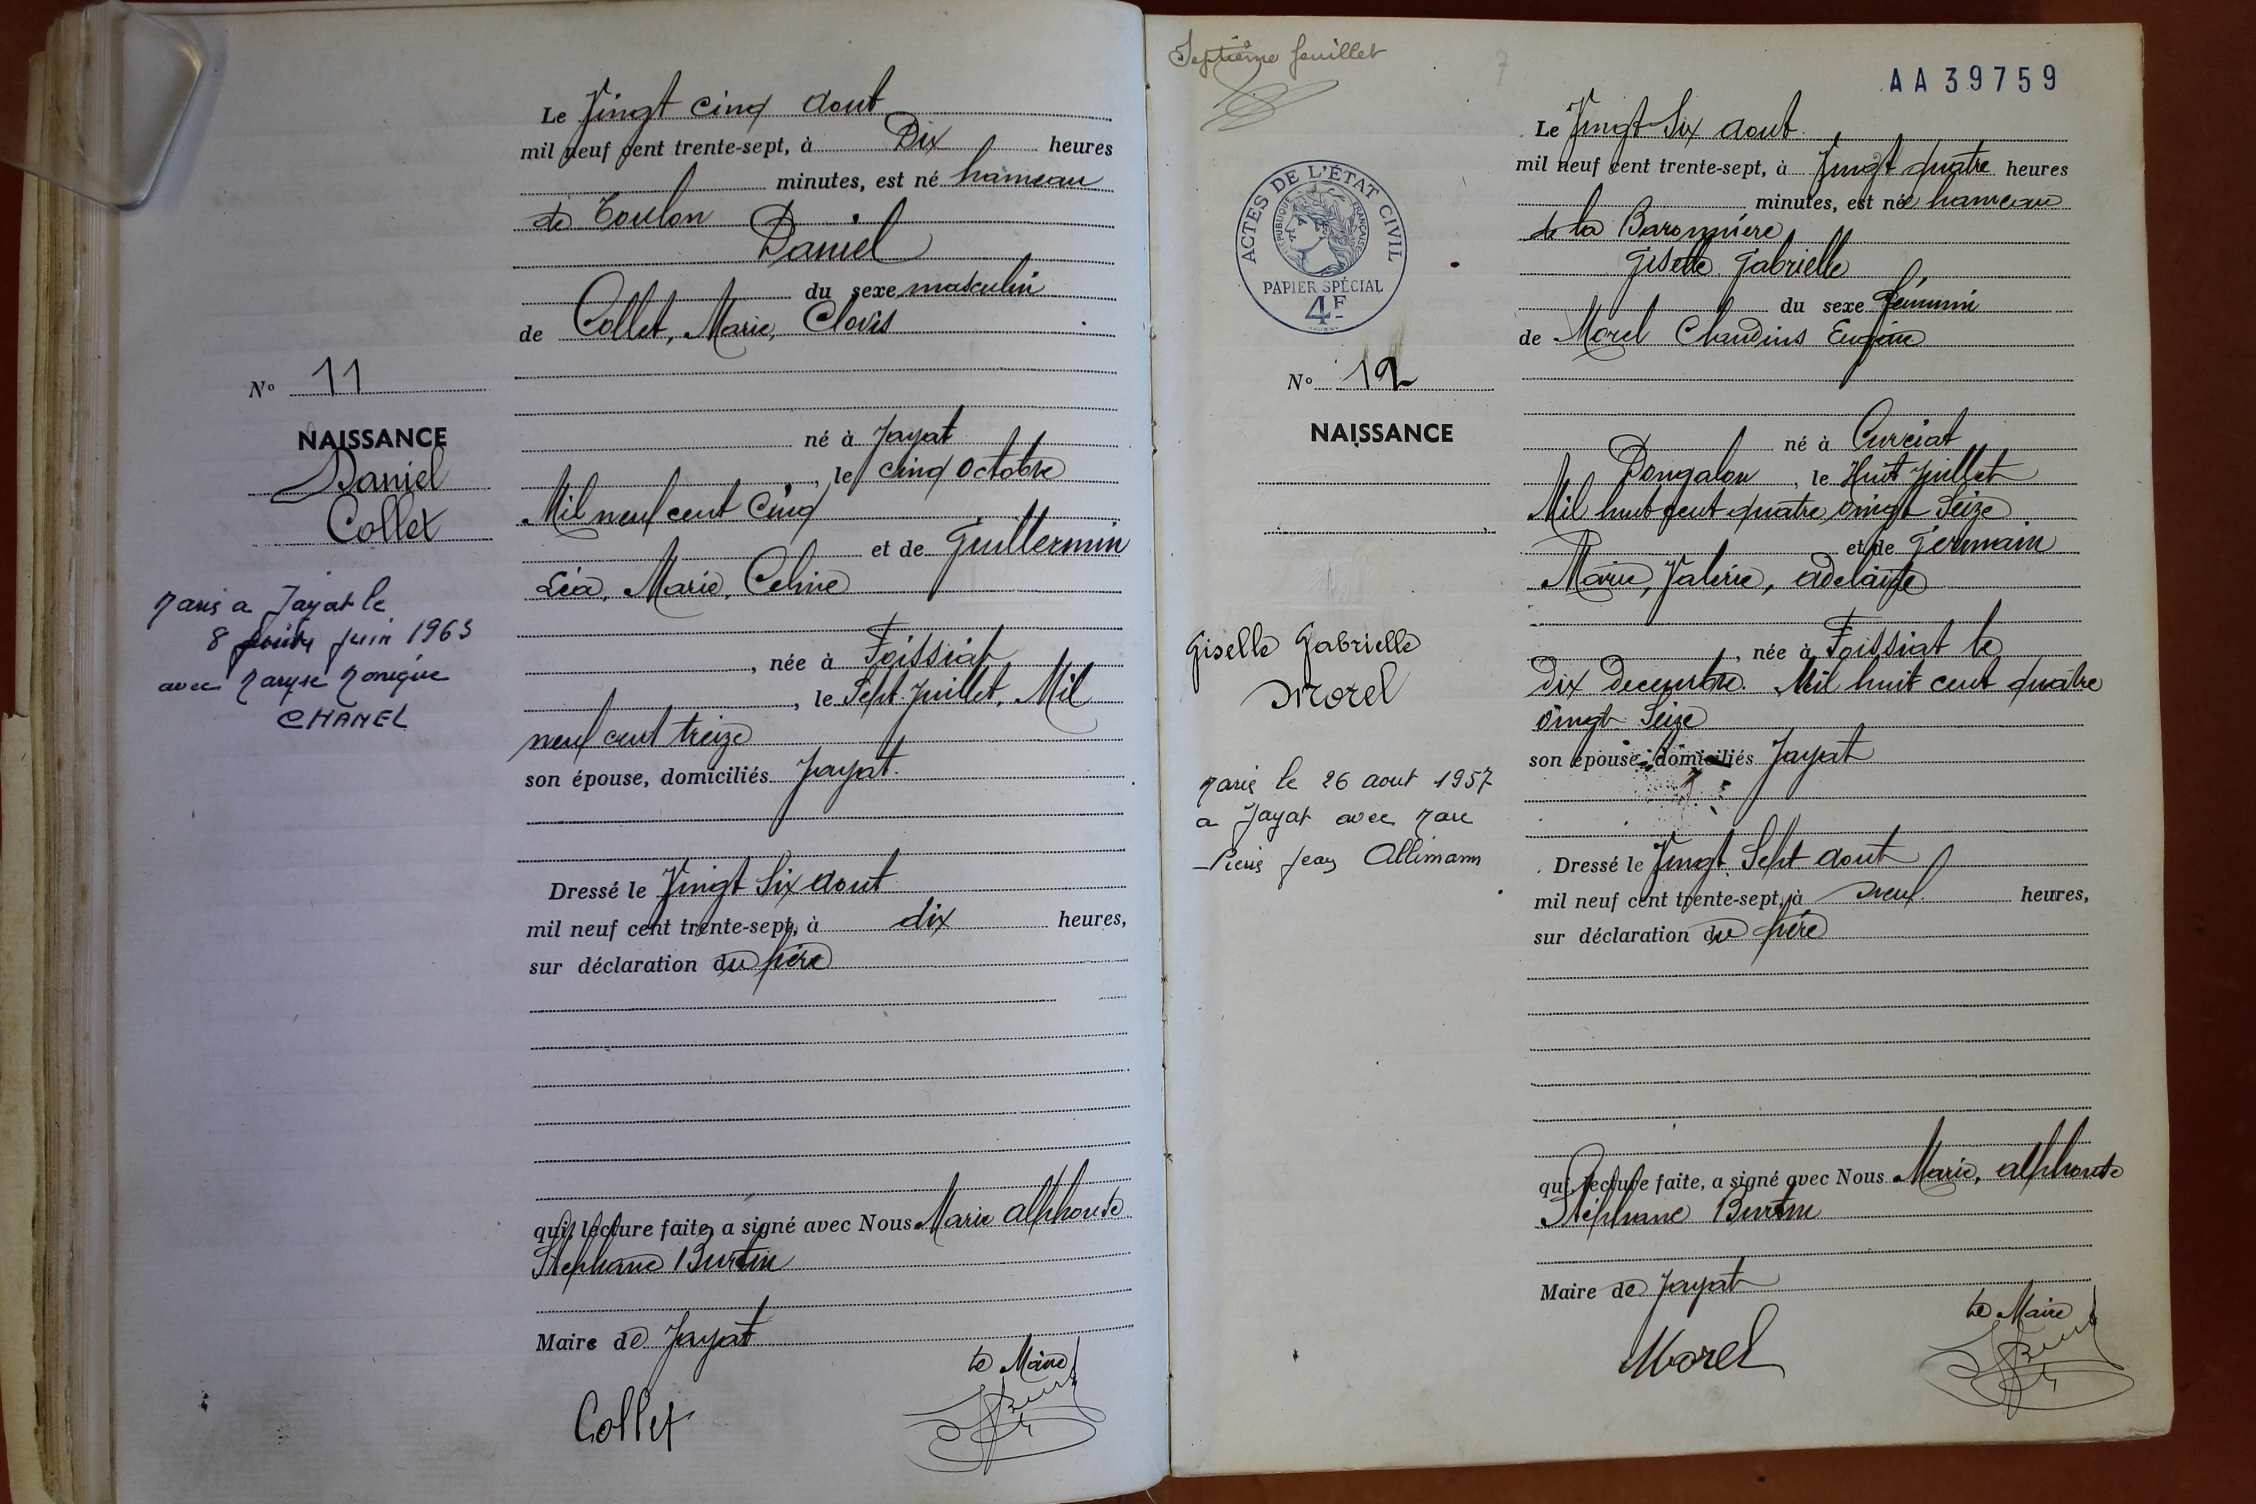 Le Vingt cinq aout
mil neuf cent trente-sept, à Dix heures
minutes, est né hameau
de Toulon
Daniel
du sexe masculin
de Collet, Marie, Clovis
né à Jayat
, le cinq Octobre
Mil neuf cent Cinq
et de Guillermin
Léa, Marie, Celine
, née à Foissiat
, le Sept Juillet, Mil
neuf cent treize
son épouse, domiciliés Jayat
Dressé le Vingt Six aout
mil neuf cent trente-sept, à dix heures,
sur déclaration du père
qui, lecture faite, a signé avec Nous Marie Alphonse
Stéphane Burtin
Maire de Jayat
Le Maire
Collet
N° 11
NAISSANCE
Daniel
Collet
Marié a Jayat le
8 juin 1963
avec Maryse Monique
CHANEL
Septième feuillet
7
AA39759
ACTES DE L'ÉTAT CIVIL
RÉPUBLIQUE FRANÇAISE
PAPIER SPÉCIAL
4F
N° 12
NAISSANCE
Giselle Gabrielle
Morel
Marié le 26 aout 1957
a Jayat avec Marc
Pierre Jean Allimann
Le Vingt Six aout
mil neuf cent trente-sept, à Vingt quatre heures
minutes, est née hameau
de la Baronnière
Giselle Gabrielle
du sexe féminin
de Morel Claudius Eugène
né à Curciat
Dongalon, le Huit Juillet
Mil huit cent quatre vingt Seize
et de Germain
Marie, Valérie, adelaïde
, née à Foissiat le
Dix Decembre Mil huit cent quatre
vingt Seize
son épouse, domiciliés Jayat
Dressé le Vingt Sept aout
mil neuf cent trente-sept, à neuf heures,
sur déclaration du père
qui, lecture faite, a signé avec Nous Marie, Alphonse
Stéphane Burtin
Maire de Jayat
Le Maire
Morel